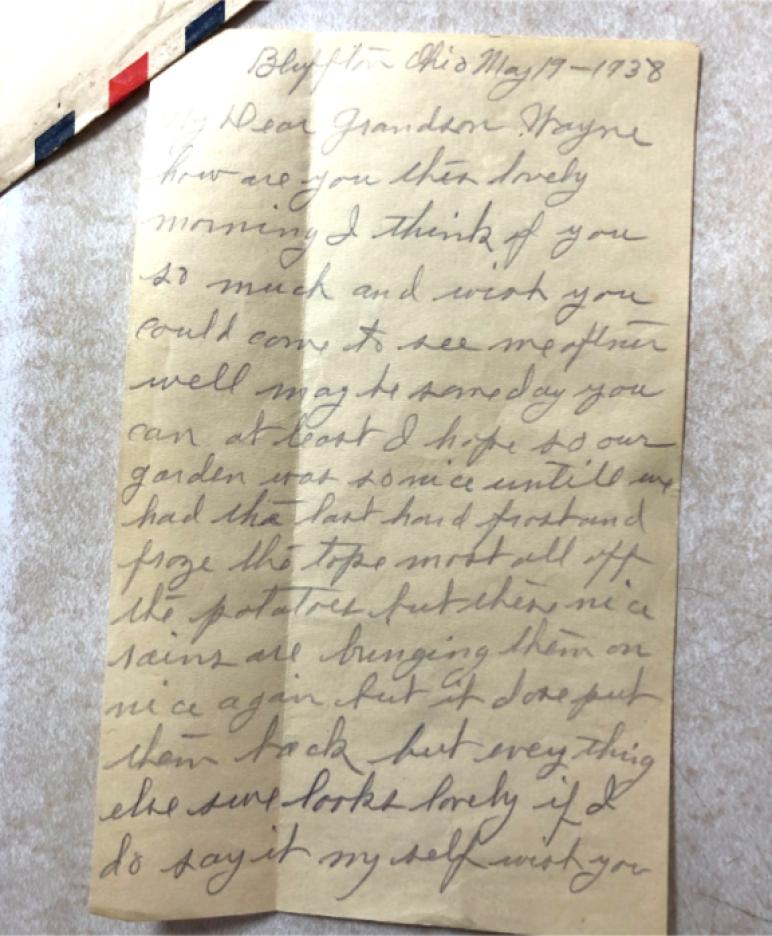 Bluffton Ohio May 19-1938
My Dear Grandson Wayne
how are you this lovely
morning I think of you
so much and wish you
could come to see me oftner
well maybe someday you
can at least I hope so our
garden was so nice untill we
had the last hard frost and
froze the tops most all off
the potatoes but these nice
rains are bringing them on
nice again but it dose put
them back but eveything
else sure looks lovely if I
do say it my self wish you